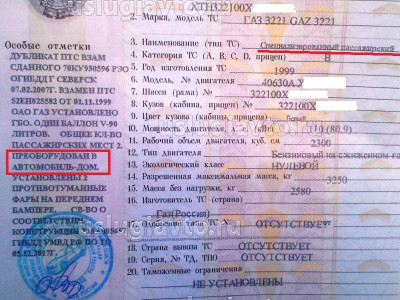 uslugiavto.ru
XTH322100X
2. Марка, модель ТС ГАЗ 3221 GAZ 3221
3. Наименование (тип ТС) Специализированный пассажирский
4. Категория ТС (А, В, С, D, прицеп) В
5. Год изготовления ТС 1999
6. Модель, № двигателя 40630A.X
7. Шасси (рама) № 322100X
8. Кузов (кабина, прицеп) № 322100X
9. Цвет кузова (кабины, прицепа) Белый
10. Мощность двигателя, л. с. (кВт) 110 (80.9)
11. Рабочий объем двигателя, куб. см 2300
12. Тип двигателя Бензиновый на сжиженном га
13. Экологический класс НУЛЕВОЙ
14. Разрешенная максимальная масса, кг 3250
15. Масса без нагрузки, кг 2580
16. Изготовитель ТС (страна)
Газ(Россия)
17. Одобрение типа ТС № ОТСУТСТВУЕТ
18. Страна вывоза ТС ОТСУТСТВУЕТ
19. Серия, № ТД, ТПО ОТСУТСТВУЕТ
20. Таможенные ограничения
НЕ УСТАНОВЛЕНЫ
Особые отметки
ДУБЛИКАТ ПТС ВЗАМ
СДАНОГО 70КУ930596 РЭО
ОГИБДД Г СЕВЕРСК
07.02.2007Г. ВЗАМЕН ПТС
52ЕН825582 ОТ 01.11.1999
ОАО ГАЗ УСТАНОВЛЕНО
ГБО. ОДИН БАЛЛОН V-90
ЛИТРОВ. ОБЩЕЕ КЛ-ВО
ПАССАЖИРСКИХ МЕСТ 2.
ПРЕОБОРУДОВАН В
АВТОМОБИЛЬ-ДОМ.
УСТАНОВЛЕНЫ 2
ПРОТИВОТУМАННЫЕ
ФАРЫ НА ПЕРЕДНЕМ
БАМПЕРЕ. СВ-ВО О
СООТВЕТСТВИИ
КОНСТРУКЦИИ
ГИБДД УМВД РФ ПО ТО
05.12.2017Г.
uslugiavto.ru